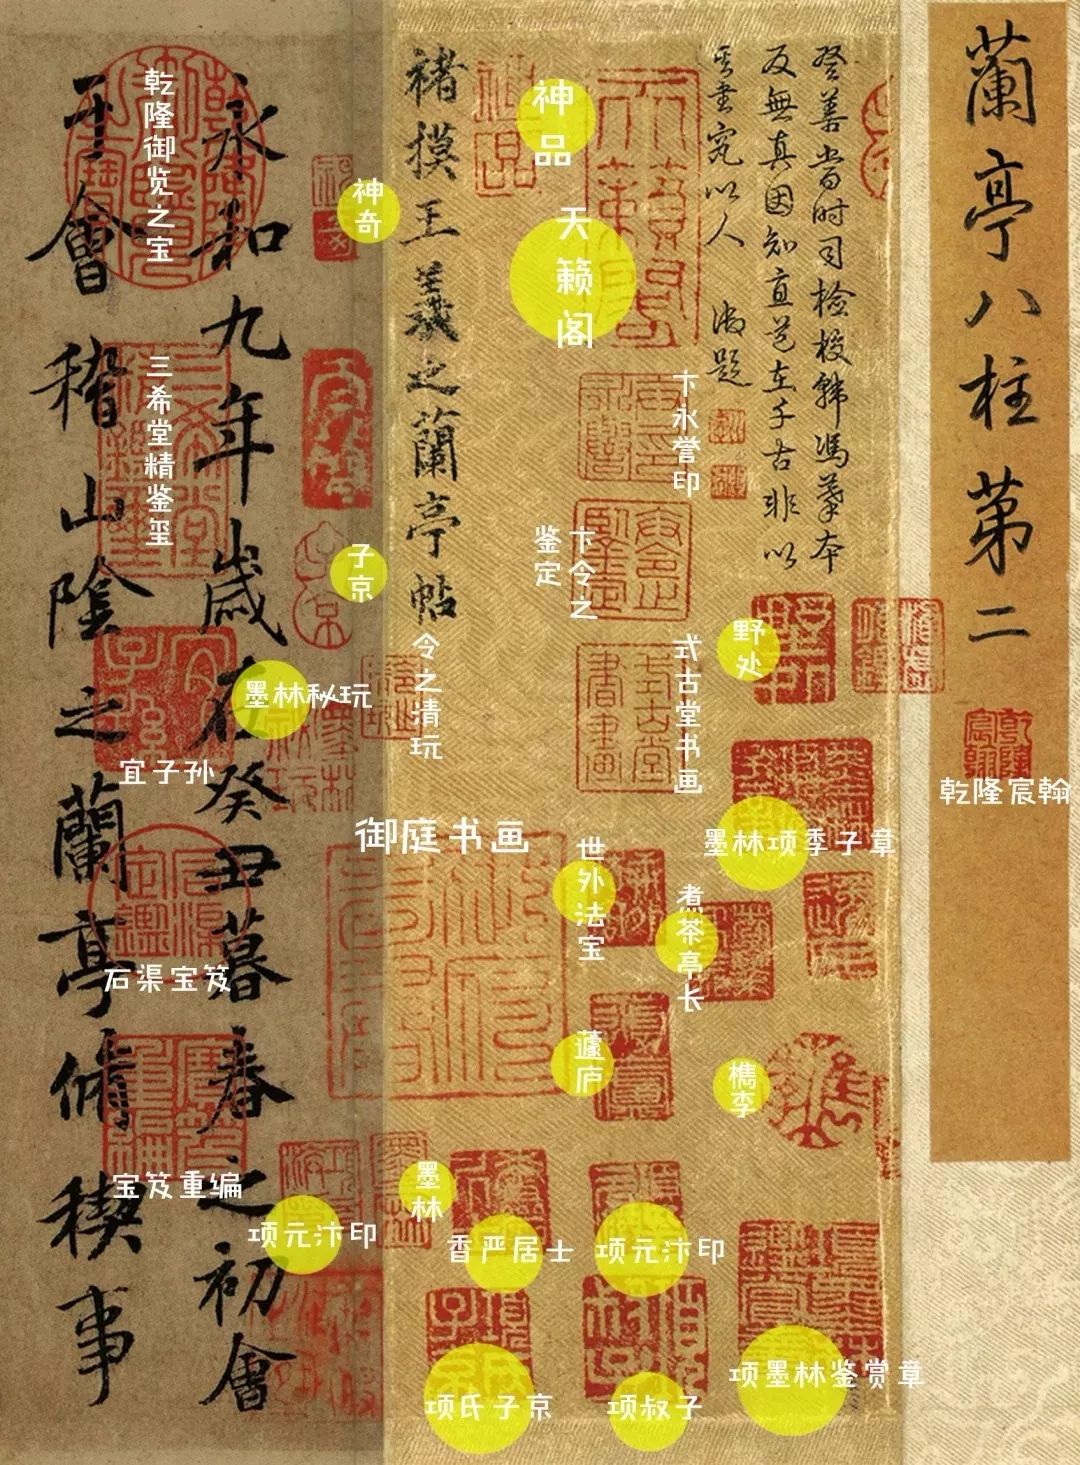 蘭亭八柱第二
乾隆宸翰
登善當時司檢校韩馮摹本
反無真因知直筆在千古非以
其書究以人 㴋題
神品
天籁阁
卞永誉印
卞令之
鉴定
式古堂书画
野处
墨林项季子章
世外法宝
煮茶亭长
蘧庐
槜李
褚摸王羲之蘭亭帖
令之清玩
御庭书画
墨林
香严居士
项元汴印
项氏子京
项叔子
项墨林鉴赏章
神奇
子京
墨林秘玩
项元汴印
永和九年歲在癸丑暮春之初會
于會稽山陰之蘭亭脩稧事
乾隆御览之宝
三希堂精鉴玺
宜子孙
石渠宝笈
宝笈重编